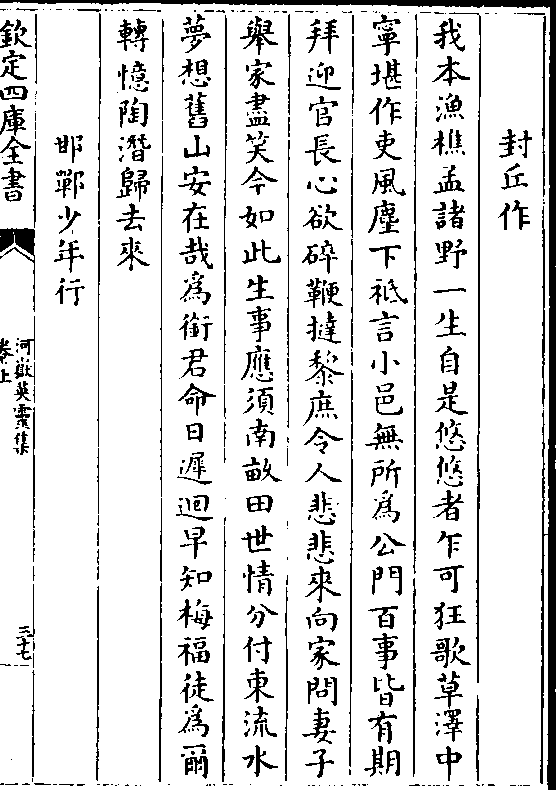 封丘作
我本漁樵孟諸野一生自是悠悠者乍可狂歌草澤中
寧堪作吏風塵下祗言小邑無所為公門百事皆有期
拜迎官長心欲碎鞭撻黎庶令人悲悲來向家問妻子
舉家盡笑今如此生事應須南畝田世情分付東流水
夢想舊山安在哉為銜君命日遲迴早知梅福徒為爾
轉憶陶潛歸去來
邯鄲少年行
欽定四庫全書
河嶽英靈集
卷上
三十七